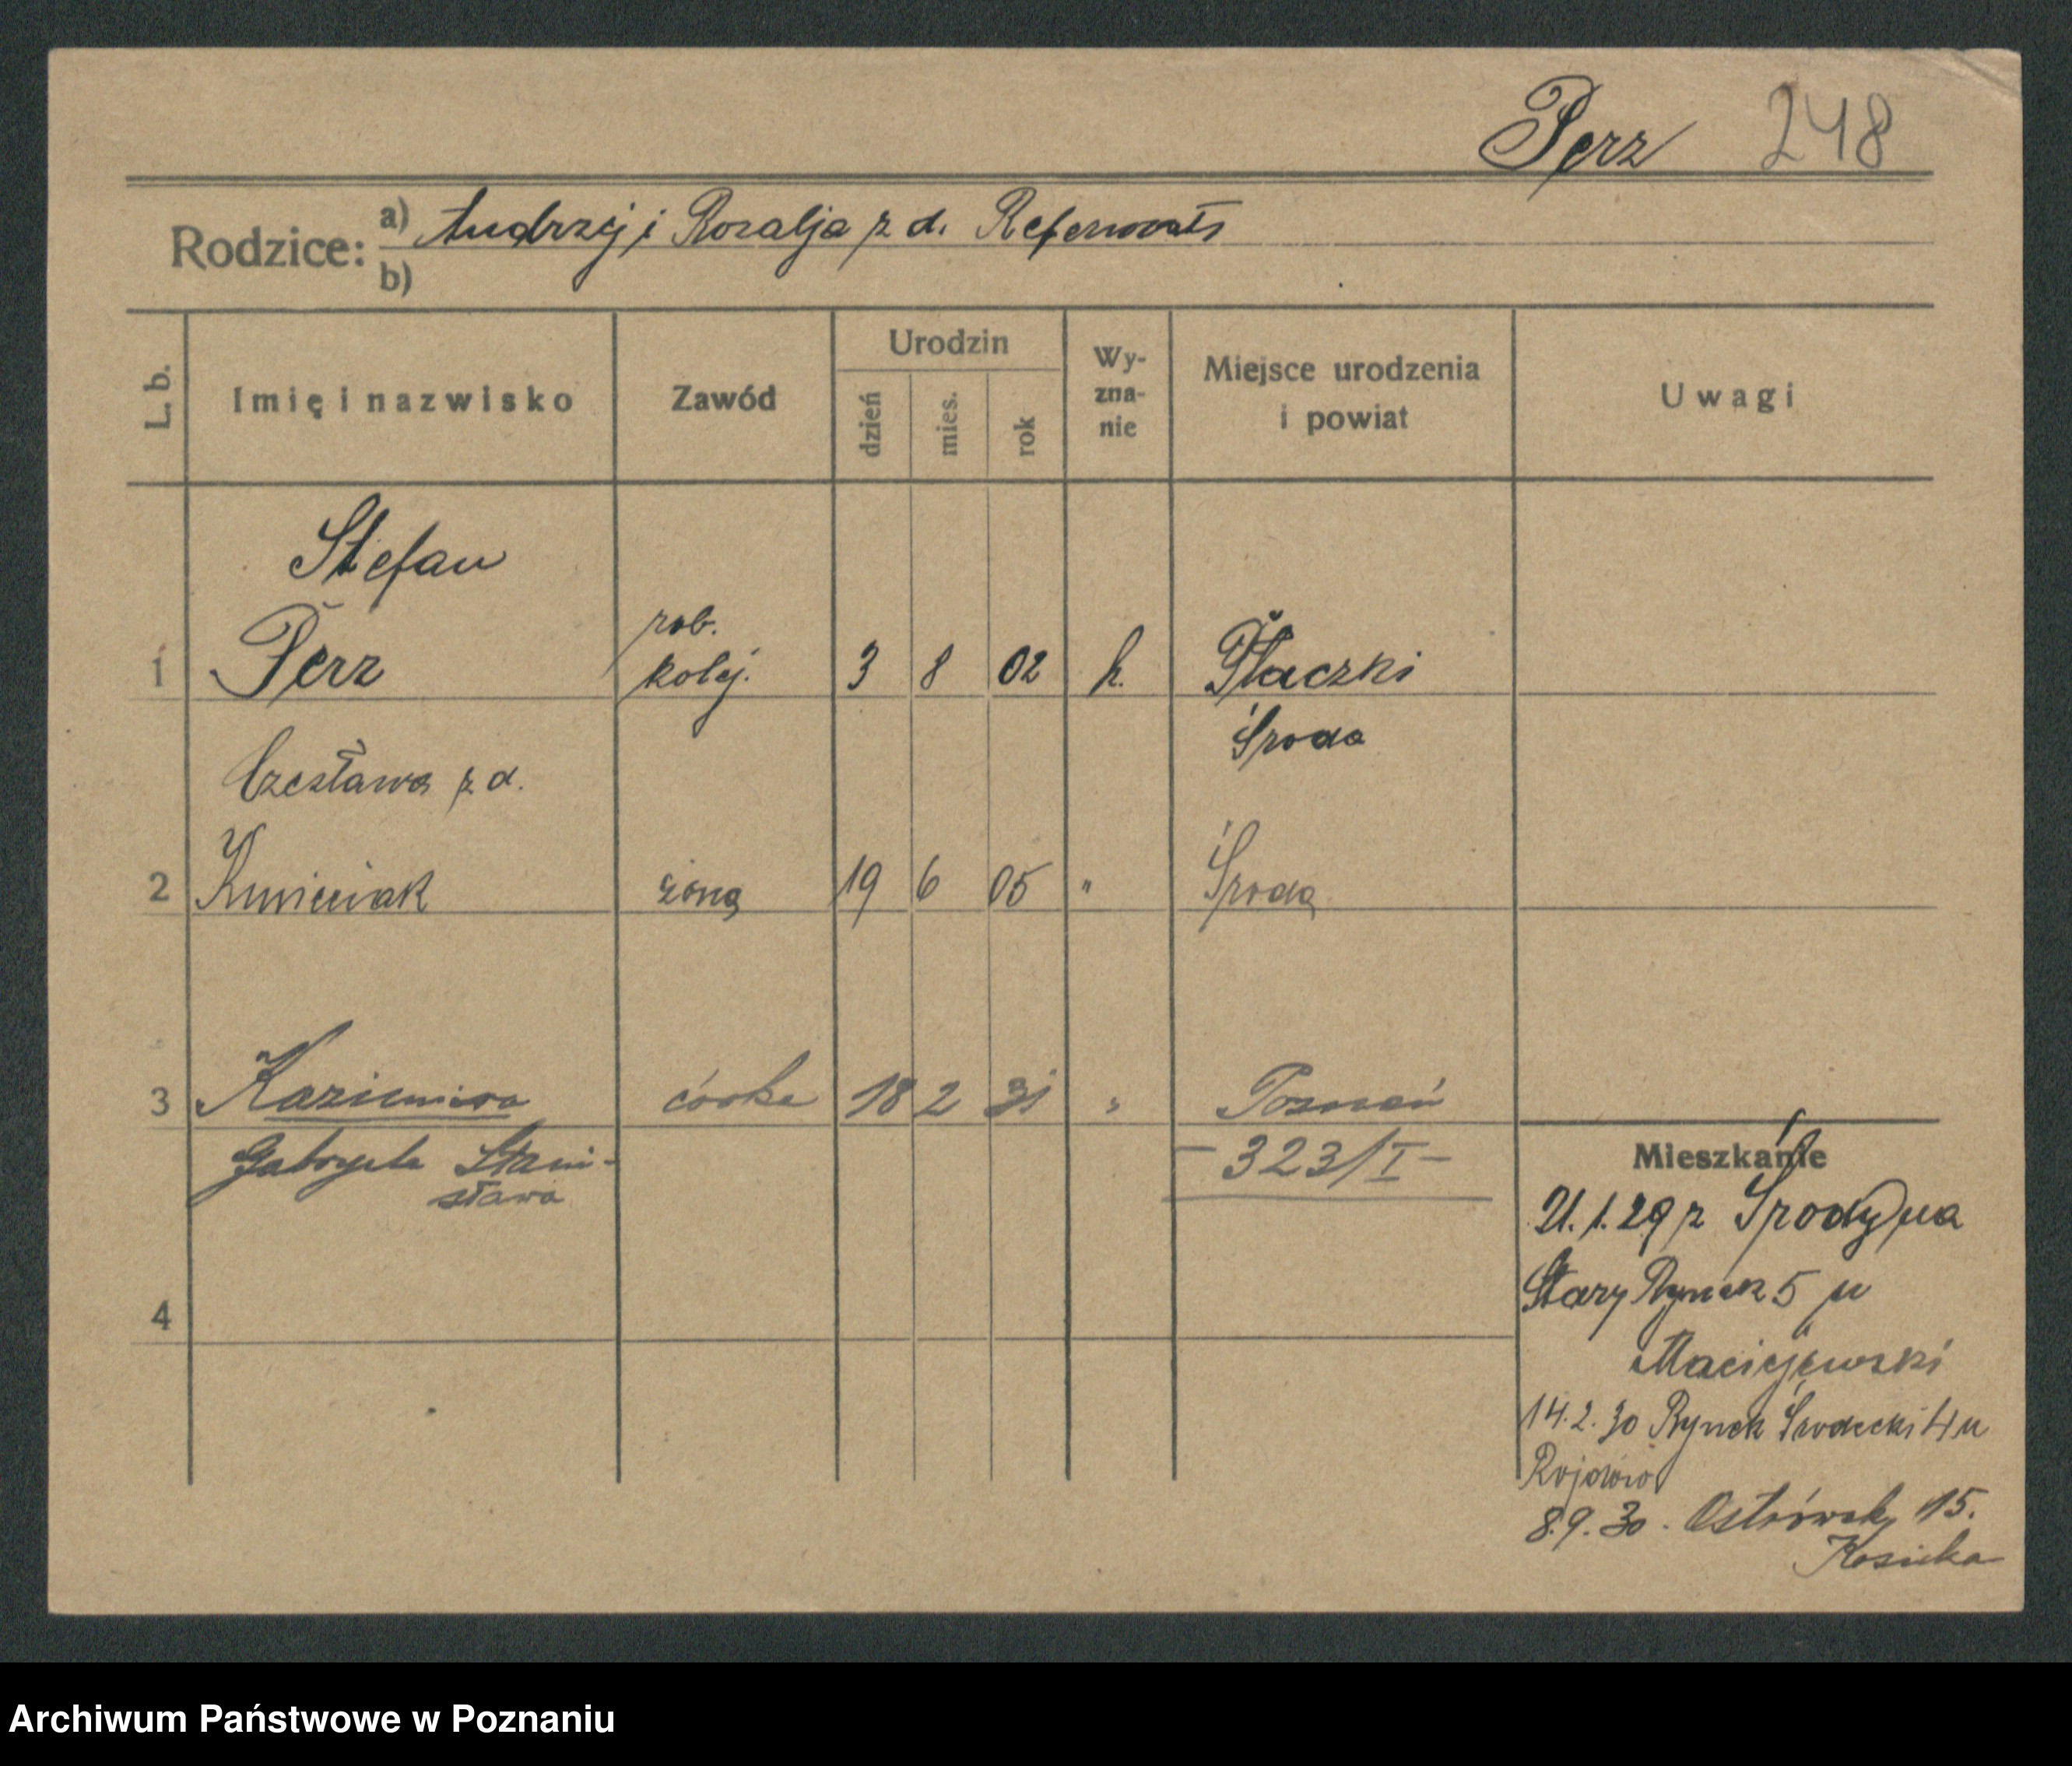 Perz 248
Rodzice: a) Andrzej i Rozalja z d.
b)
L. b. Imię i nazwisko Zawód Urodzin dzień mies. rok Wy-zna-nie Miejsce urodzenia i powiat Uwagi
Stefan
rob.
1 Perz kolej. 3 8 02 k. Płaczki
Środa
Czesława z d.
2 Kmieciak żona 19 6 05 " Środa
3 Kazimiera córka 18 2 31 " Poznań
Gabryela Stani-
sława
- 323/I -
Mieszkanie
21.1.29 z Środy na
Stary Rynek 5 u
Maciejewski
4
14.2.30 Rynek Śródecki 4 u
8.9.30. Ostrówek 15.
Archiwum Państwowe w Poznaniu